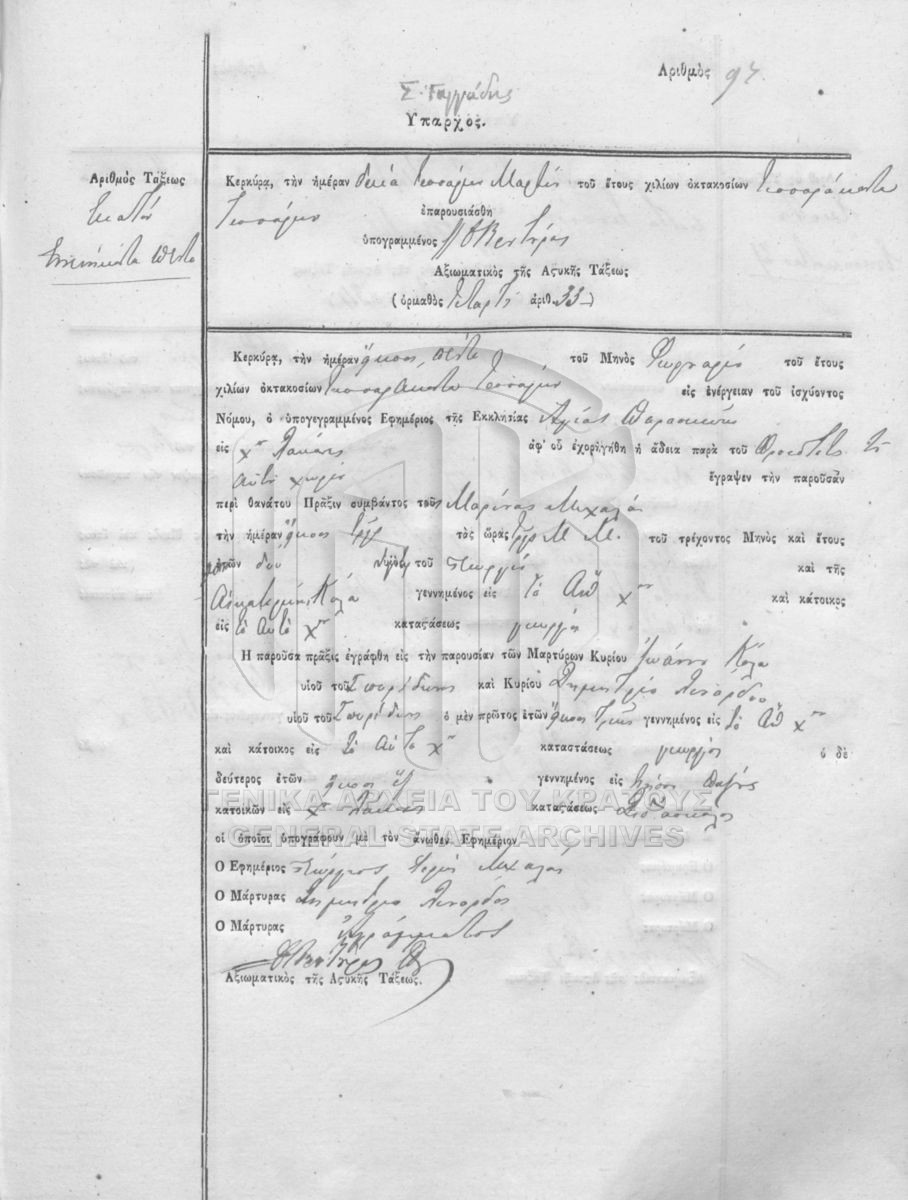 Αριθμὸς 97.
Υπαρχος.
Αριθμὸς Τάξεως
Εκατόν
Εννενήκοντα πέντε
Κερκύρα, τὴν ἡμέραν δεκά Τεσσάρων Μαρτίου τοῦ ἔτους χιλίων ὀκτακοσίων Τεσσαράκοντα
Τεσσάρων ἐπαρουσιάσθη
ὑπογραμμένος
Αξιωματικὸς τῆς Αςυκῆς Τάξεως
(ὁρμαθὸς Τεταρτη ἀριθ. 33)
Κερκύρα, τὴν ἡμέραν ἤκοσι πέντε τοῦ Μηνὸς Φευρναρίου τοῦ ἔτους
χιλίων ὀκτακοσίων Τεσσαράκοντα Τεσσάρων εἰς ἐνέργειαν τοῦ ἰσχύοντος
Νόμου, ὁ ὑπογεγραμμένος Εφημέριος τῆς Εκκλησίας Αγίας Παρασκευῆς
εἰς χ Λάκωνες ἀφ' οὗ ἐχορηγήθη ἡ ἄδεια παρὰ τοῦ Προεστός τοῦ
αὐτοῦ χωρίου ἔγραψεν τὴν παροῦσαν
περὶ θανάτου Πρᾶξιν συμβάντος τοῦ Μαρίνας Μιχαλά
τὴν ἡμέραν ἤκοσι τρῆς τὰς ὥρας τρῆς Μ. Μ. τοῦ τρέχοντος Μηνὸς καὶ ἔτους
δύο τοῦ Γεωργίου καὶ τῆς
Κόλα γεννημένος εἰς τὸ Αὐτὸ χ καὶ κάτοικος
εἰς τὸ αὐτὸ χ καταςάσεως γεωργός
Η παροῦσα πρᾶξις ἐγράφθη εἰς τὴν παρουσίαν τῶν Μαρτύρων Κυρίου Ἰωάννου Κόλα
υἱοῦ τοῦ Σπυρίδωνος καὶ Κυρίου Δημητρίου Λινάρδου
υἱοῦ τοῦ Σπυρίδωνος ὁ μὲν πρῶτος ἐτῶν ἤκοσι τρῆς γεννημένος εἰς τὸ Αὐτὸ χ
καὶ κάτοικος εἰς τὸ αὐτὸ χ καταστάσεως γεωργός ὁ δὲ
δεύτερος ἐτῶν ἤκοσι ἕξ γεννημένος εἰς
κατοικῶν εἰς χ Λάκωνες καταςάσεως Διδάσκαλος
οἱ ὁποῖοι ὑπογράφουν μὲ τὸν ἄνωθεν Εφημέριον
Ο Εφημέριος Γεώργιος Ιερεύς Μιχαλάς
Ο Μάρτυρας Δημήτριος Λινάρδος
Ο Μάρτυρας ἀγράμματος
Αξιωματικὸς τῆς Αςυκῆς Τάξεως.
ΓΕΝΙΚΑ ΑΡΧΕΙΑ ΤΟΥ ΚΡΑΤΟΥΣ
GENERAL STATE ARCHIVES